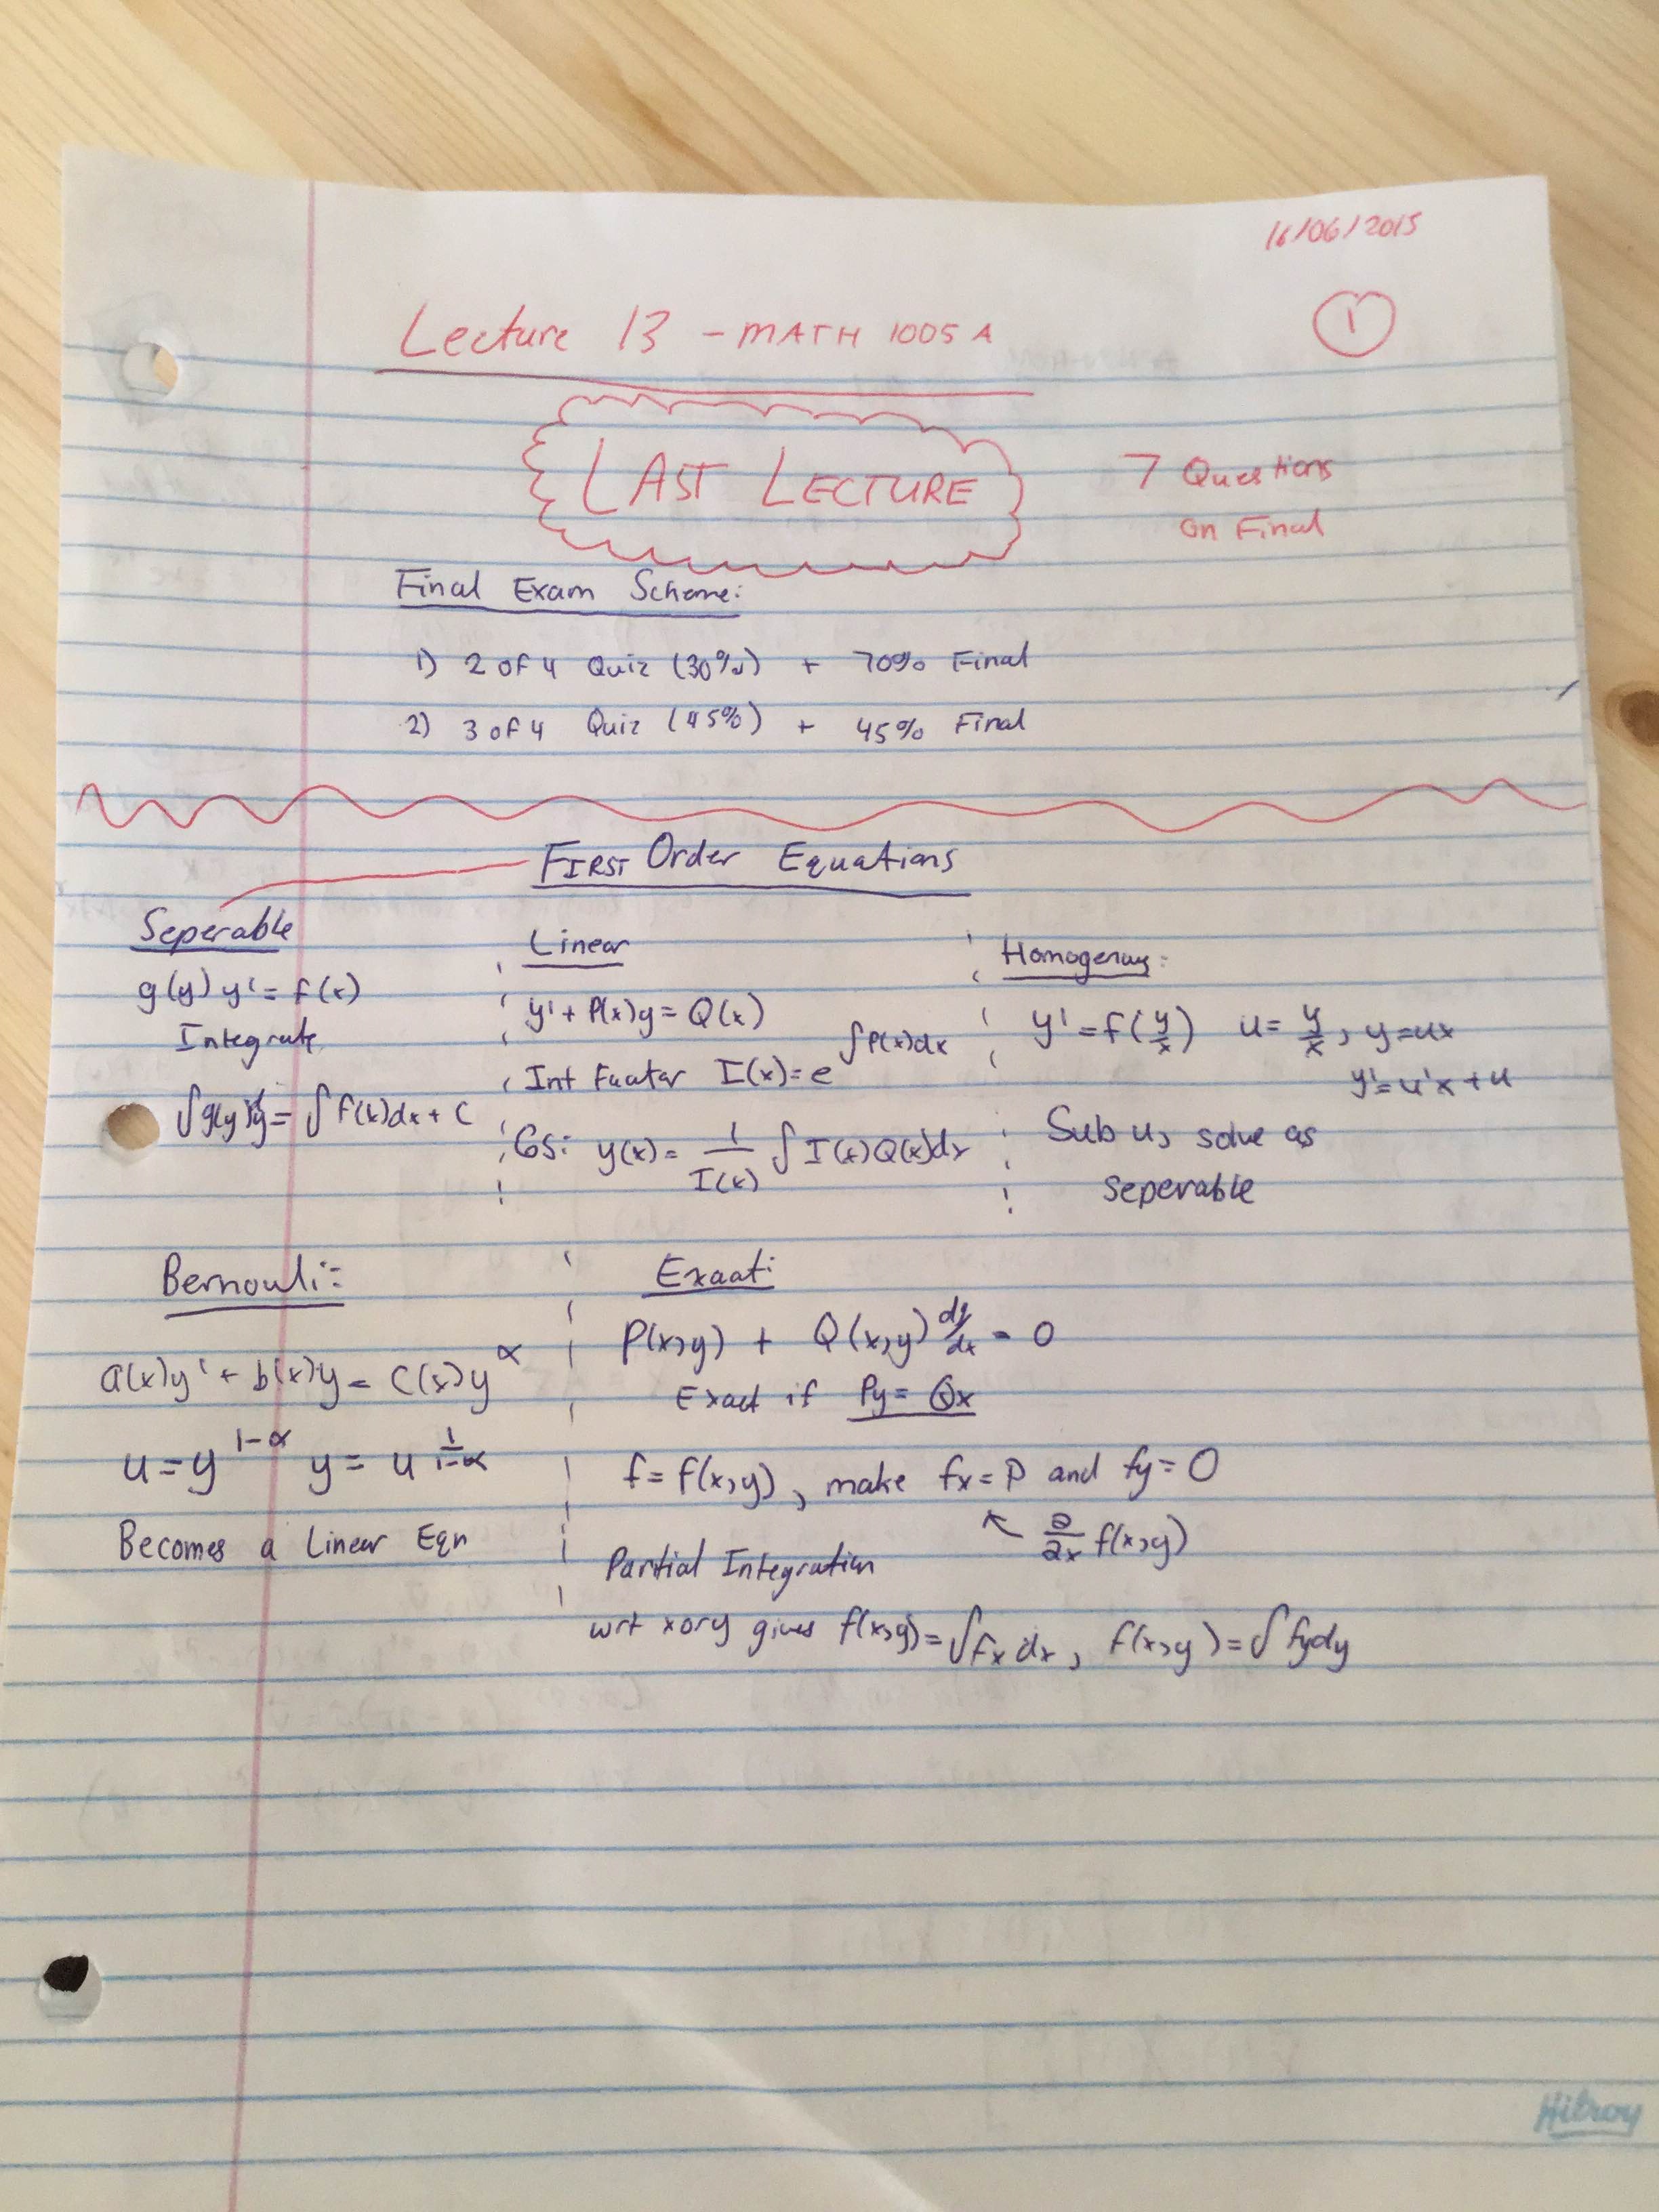 16/06/2015
Lecture 13 - MATH 1005 A
1
LAST LECTURE
7 Questions
on Final
Final Exam Scheme:
1) 2 of 4 Quiz (30%) + 70% Final
2) 3 of 4 Quiz (45%) + 45% Final
FIRST Order Equations
Seperable
g(y) y' = f(x)
Integrate
∫g(y)dy = ∫f(x)dx + C
Linear
y' + P(x)y = Q(x)
Int Factor I(x) = e^∫P(x)dx
GS: y(x) = 1/I(x) ∫ I(x)Q(x)dx
Homogenous:
y' = f(y/x) u = y/x, y = ux
y' = u'x + u
Sub u, solve as
seperable
Bernouli:
a(x)y' + b(x)y = c(x)y^α
u = y^(1-α) y = u^(1/(1-α))
Becomes a Linear Eqn
Exact:
P(x,y) + Q(x,y) dy/dx = 0
Exact if Py = Qx
f = f(x,y), make fx = P and fy = Q
↖ ∂/∂x f(x,y)
Partial Integration
wrt x or y gives f(x,y) = ∫fx dx, f(x,y) = ∫fy dy
Hilroy